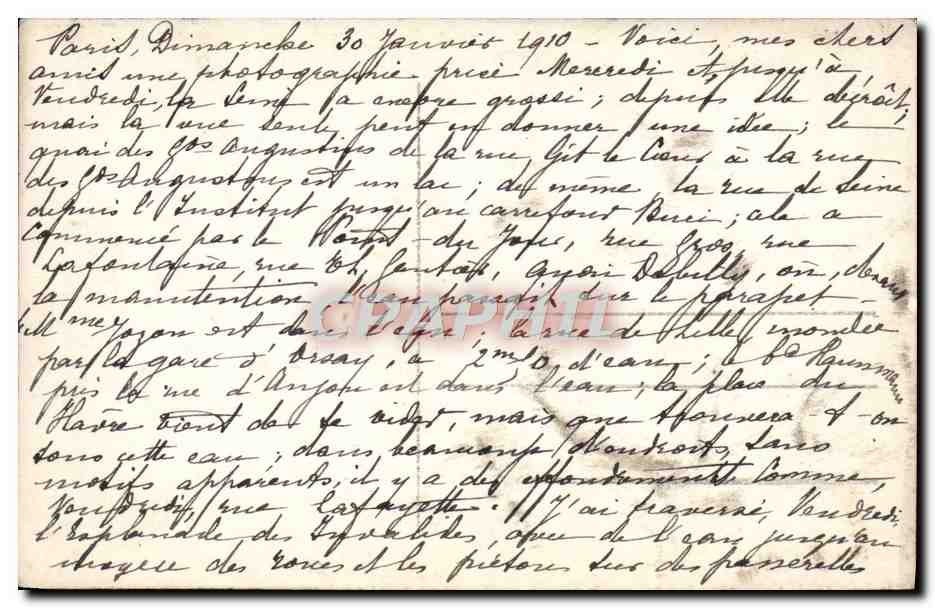 Paris, Dimanche 30 Janvier 1910 – Voici, mes chers
amis une photographie prise Mercredi et jusqu'à
Vendredi, la Seine a encore grossi ; depuis elle décroît,
mais la vue seule peut en donner une idée ; le
quai des Gds Augustins de la rue Git le Cœur à la rue
des Gds Augustins est un lac ; de même la rue de Seine
depuis l'Institut jusqu'au carrefour Buci ; cela a
commencé par le Point-du-Jour, rue Gros, rue
Lafontaine, rue Th. Gautier, quai Debilly, où, devant
la manutention l'eau passait sur le parapet –
Mme Jozon est dans l'eau ; la rue de Lille inondée
par la gare d'Orsay, a 2m50 d'eau ; le bd Haussmann
près la rue d'Anjou est dans l'eau ; la place du
Hâvre vient de se vider, mais que trouvera-t-on
sous cette eau ; dans beaucoup d'endroits, sans
motifs apparents, il y a des effondrements comme,
Vendredi, rue Lafayette. J'ai traversé, Vendredi,
l'Esplanade des Invalides, avec de l'eau jusqu'au
moyeu des roues et les piétons sur des passerelles
CPAPHIL